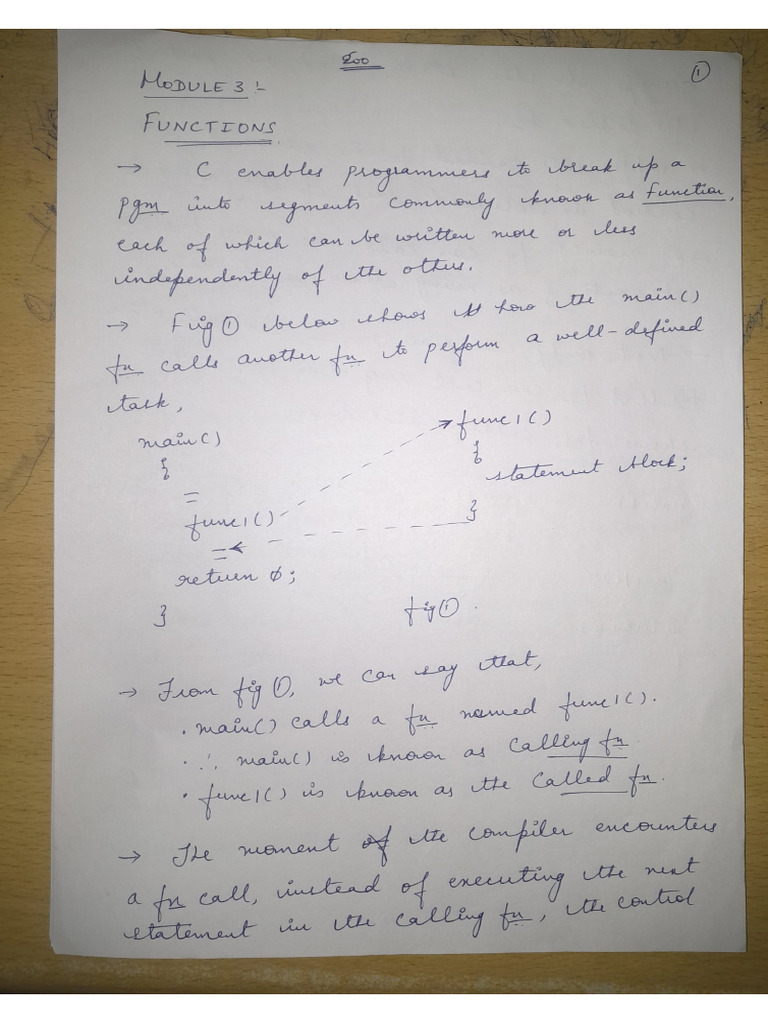 ①
MODULE 3 :-
FUNCTIONS
→ C enables programmers to break up a
pgm into segments commonly known as Function,
each of which can be written more or less
independently of the others.
→ Fig ① below shows how the main()
fn calls another fn to perform a well-defined
task,
main() func1()
{ {
= statement block;
func1() }
=
return 0;
} fig ①.
→ From fig ①, we can say that,
• main() calls a fn named func1().
• ∴ main() is known as Calling fn.
• func1() is known as the Called fn.
→ The moment the compiler encounters
a fn call, instead of executing the next
statement in the calling fn, the control